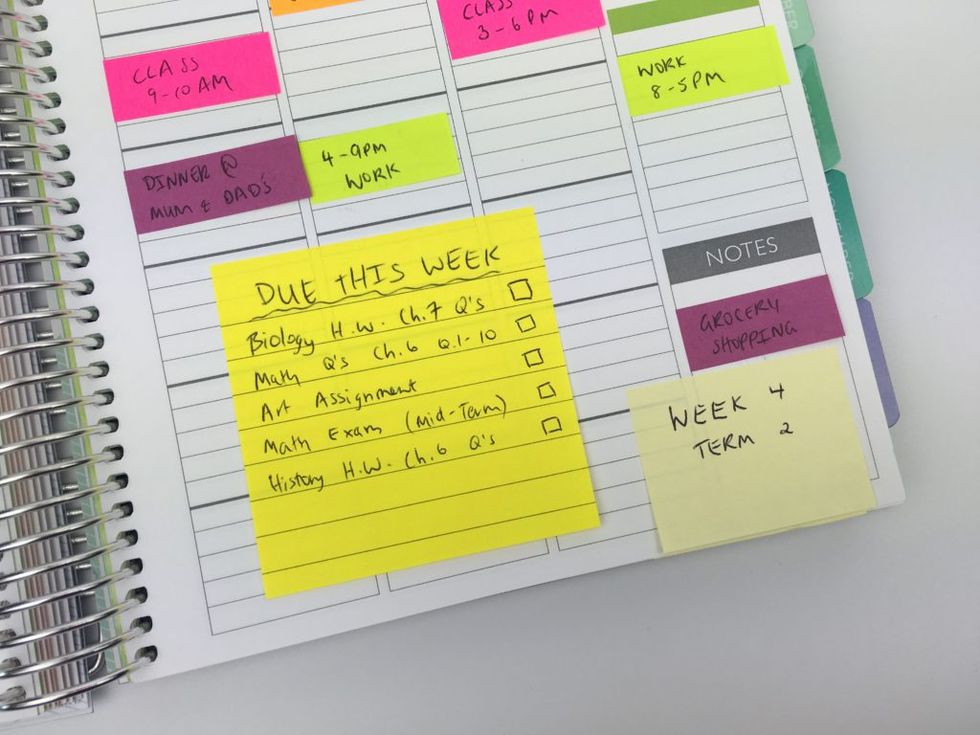 CLASS
3-6PM
CLASS
9-10AM
WORK
8-5PM
DINNER @
MUM & DAD'S
4-9PM
WORK
DUE THIS WEEK
Biology H.W. Ch.7 Q's
Math Q's Ch.6 Q.1-10
Art Assignment
Math Exam (Mid-Term)
History H.W. Ch.6 Q's
NOTES
GROCERY
SHOPPING
WEEK 4
TERM 2